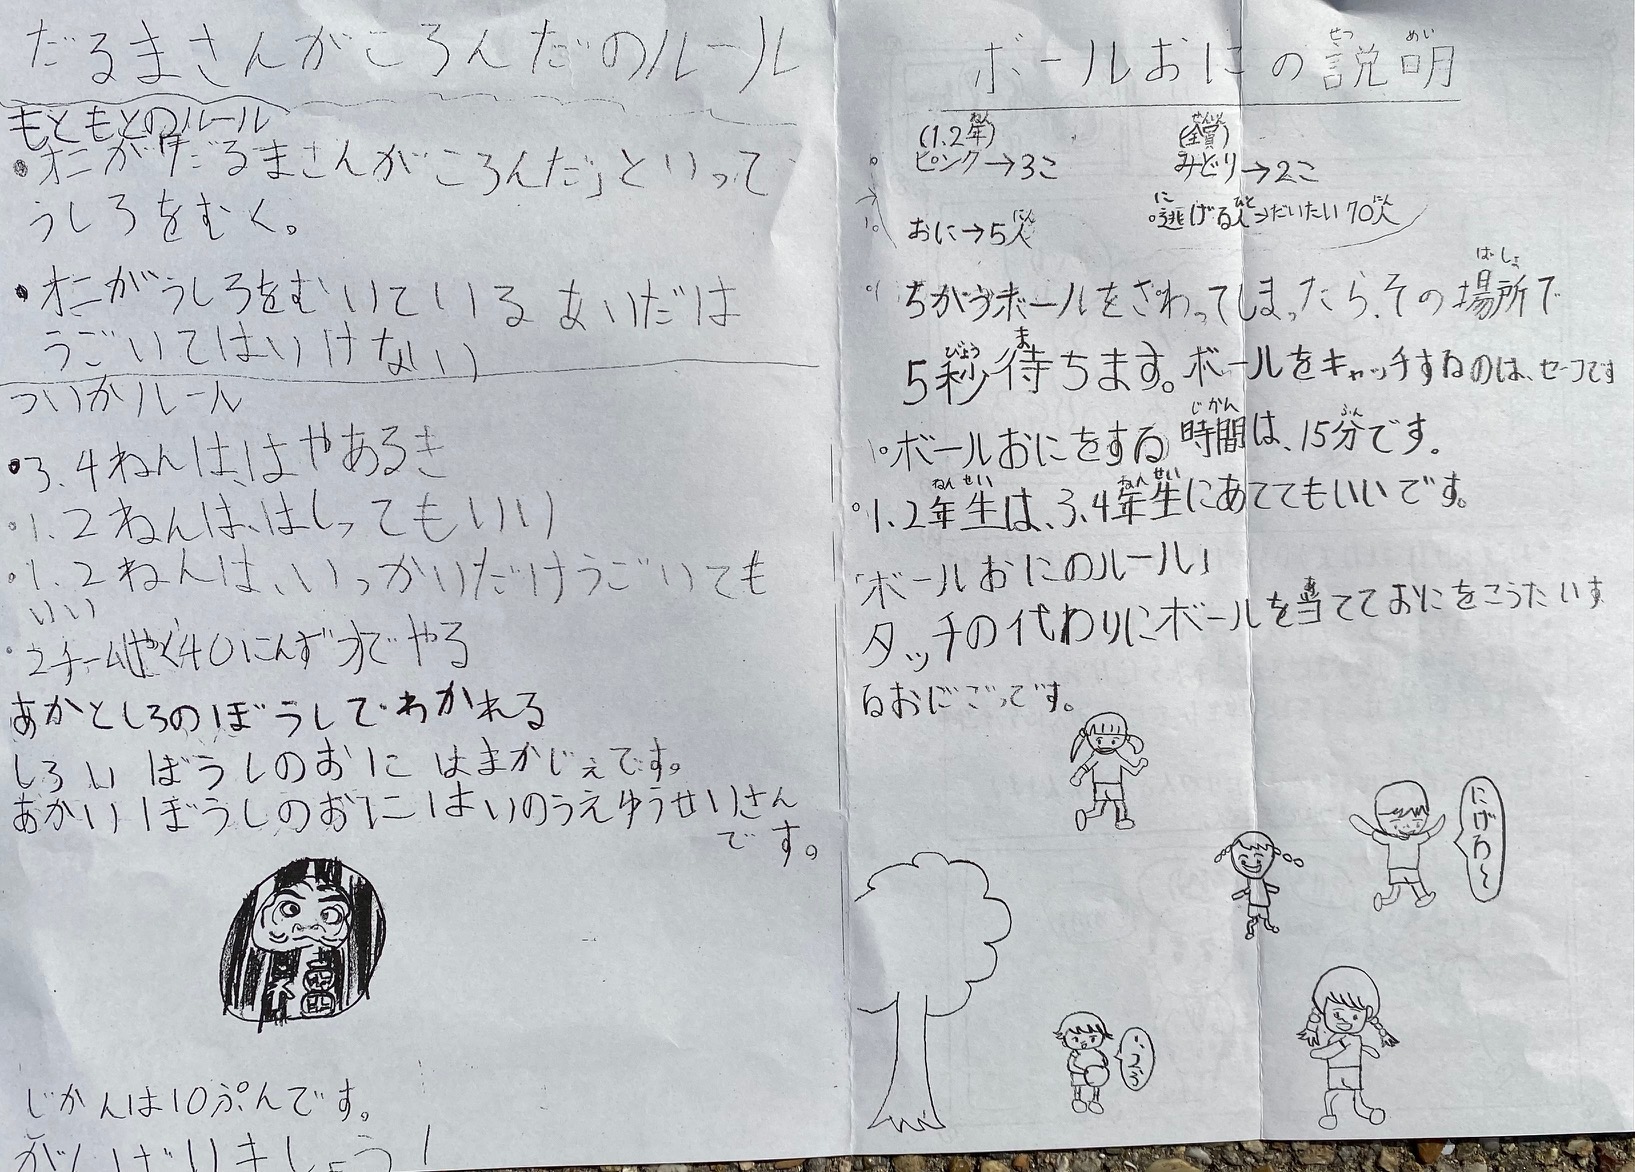 だるまさんがころんだのルール
もともとのルール
・オニが「だるまさんがころんだ」といって
うしろをむく。
・オニがうしろをむいている あいだは
うごいてはいけない
ついかルール
・3.4ねんは、はやあるき
・1.2ねんは、はしってもいい
・1.2ねんは、いっかいだけうごいても
いい
・2チームやく40にんずつでやる
あかとしろのぼうしでわかれる
しろいぼうしのおにはまかじぇです。
あかいぼうしのおにはいのうえゆうせいさん
です。
じかんは10ぷんです。
がんばりましょう!
ボールおにの説明
せつ めい
(1.2年)
ねん
ピンク→3こ
(全員)
ぜんいん
みどり→2こ
おに→5人
にん
逃げる人→だいたい70人
に ひと にん
ちがうボールをさわってしまったら、その場所で
ばしょ
5秒待ちます。ボールをキャッチするのは、セーフです
びょう ま
ボールおにをする時間は、15分です。
じかん ふん
1.2年生は、3.4年生にあててもいいです。
ねんせい ねんせい
「ボールおにのルール」
タッチの代わりにボールを当てておにをこうたいす
あ
るおにごっこです。
にげろ〜
1、2、3